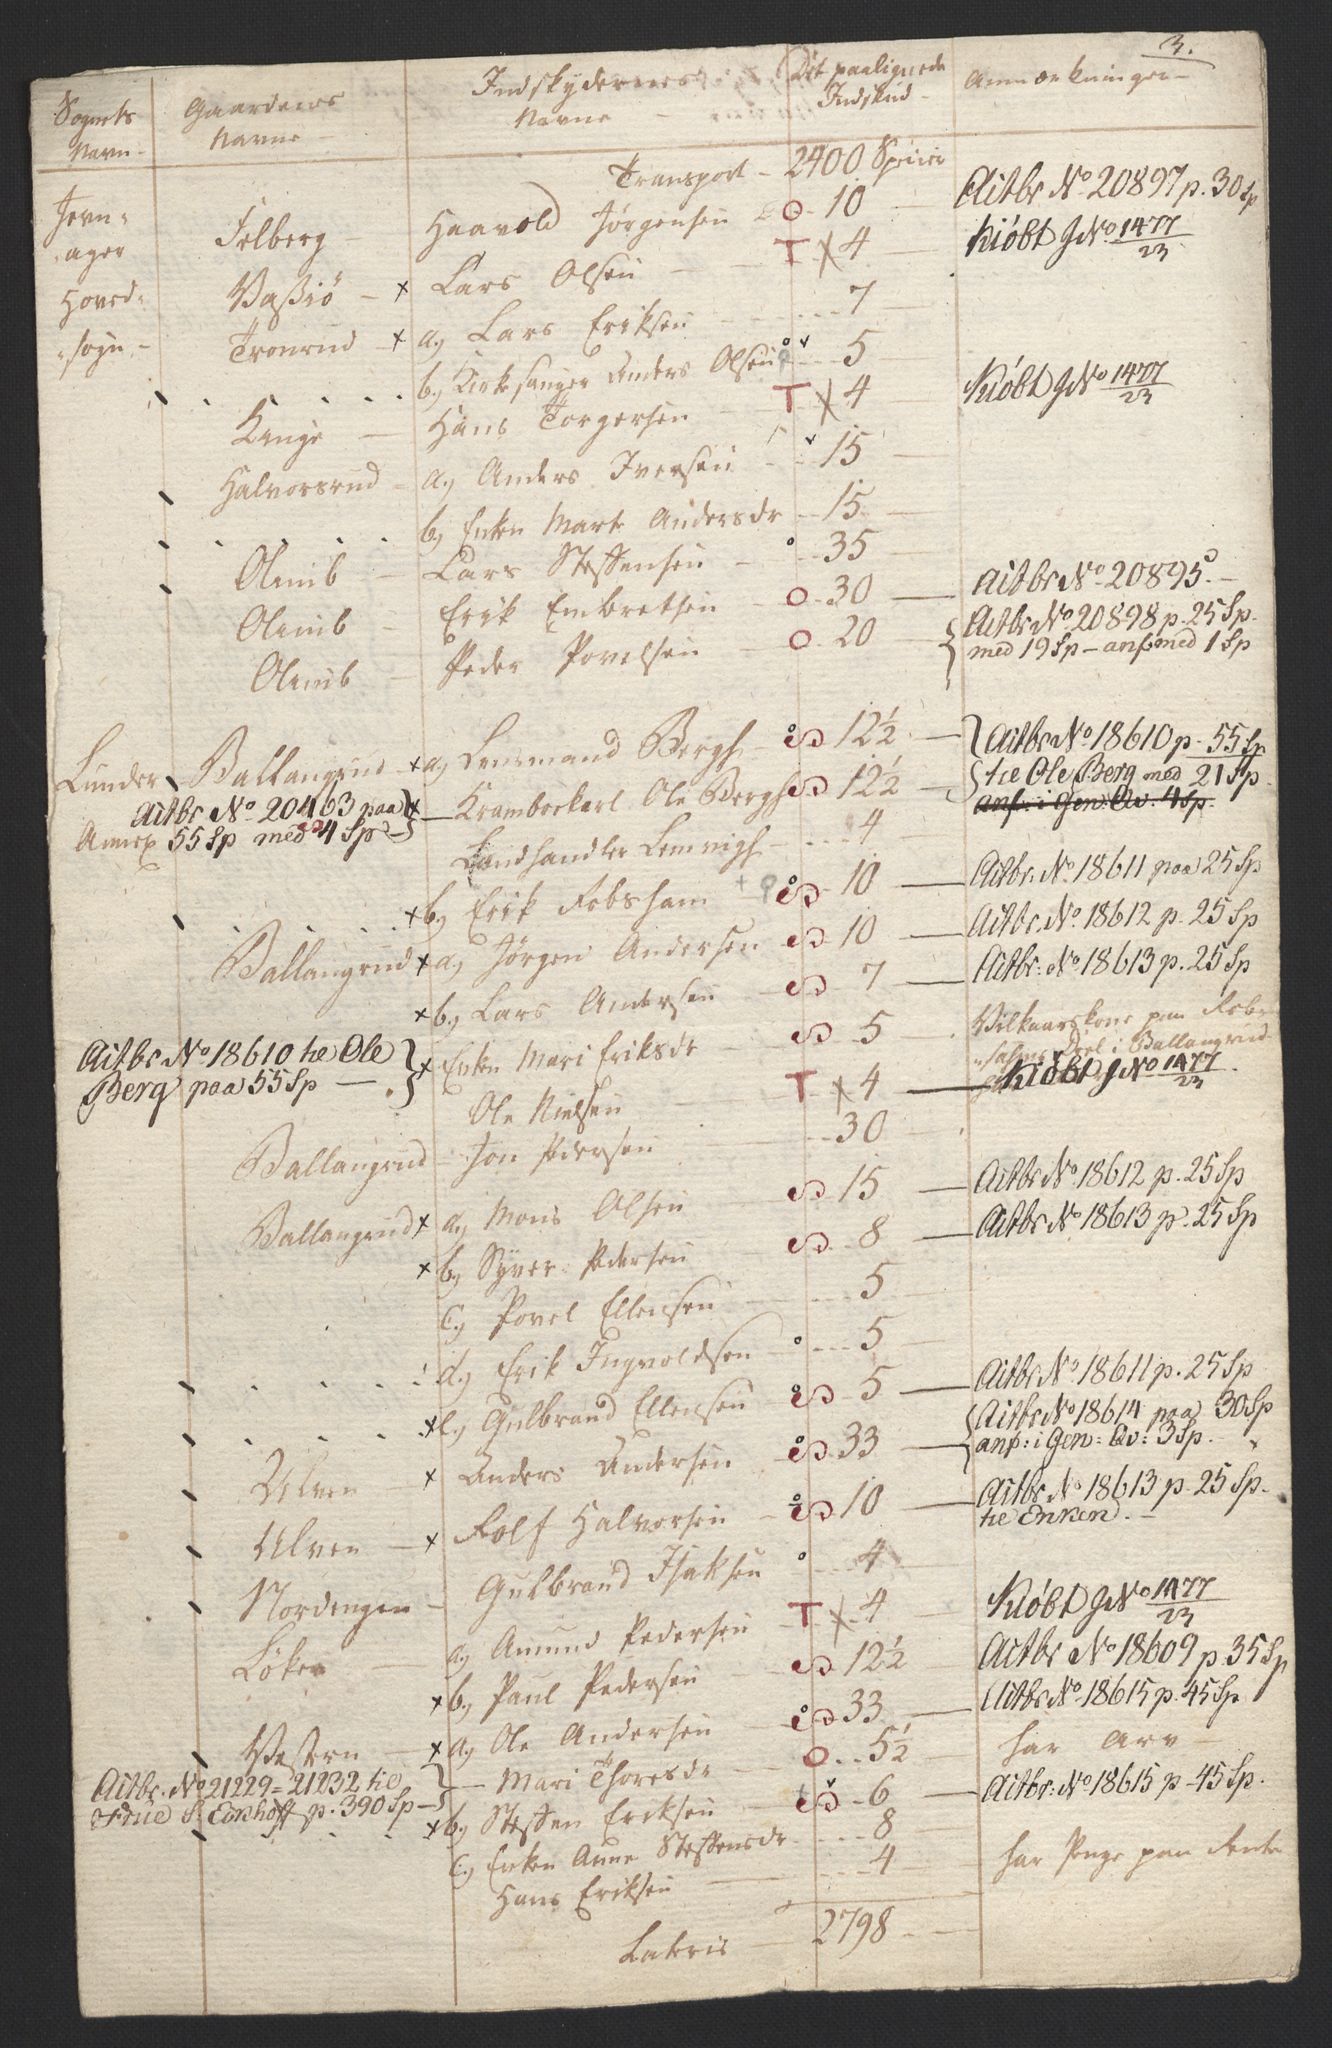 3.
Sognets Navn - Gaardenes Navne - Indskydernes Navne - Det paalignede Indskud - Anmærkninger -
Transport - 2400 Specier
Jevn= Felberg - Haavold Jørgensen O - 10 - Actbr No 20897 p. 30 Sp
ager Vaßiö - x Lars Olsen T x 4 - Kiöbt JNo 1477/23
Hoved= Tronrud - x a, Lars Eriksen - 7
=sogn - b, Kirkesanger Anders Olsen - 5
Kinge - Hans Torgersen - T x 4 - Kiöbt JNo 1477/23
Halvorsrud - a, Anders Iversen - 15
b, Enken Marte Andersdr - 15
Olimb - Lars Steffensen - 35
Olimb - Erik Embretsen O - 30 - Actbr No 20895 -
Olimb - Peder Povelsen - O - 20 { Actbr No 20898 p. 25 Sp.
med 19 Sp - anf med 1 Sp
Lunder Ballangrud x a, Lensmand Bergh - 12½ - } Actbr No 18610 p. 55 Sp
Actbr No 20403 paa x Krambodkarl Ole Bergh 12½ { tie Ole Berg med 21 Sp.
Annex 55 Sp med 4 Sp - anf: i Gen: Qv: 4 Sp.
Landhandler Lemvigh - 4
x b, Erik Robsham - 10 - Actbr. No 18611 paa 25 Sp
Ballangrud x a, Jørgen Andersen - 10 - Actbr. No 18612 p. 25 Sp
x b, Lars Andersen - 7 - Actbr: No 18613 p. 25 Sp
Actbr No 18610 tie Ole } x Enken Mari Eriksdr - 5 Vilkaarskone paa Rob=
=sahms Deel i Ballangrud
Berg paa 55 Sp - Ole Nielsen T x 4 - Kiöbt JNo 1477/23.
Ballangrud - Jon Pedersen - 30
Ballangrud x a, Mons Olsen - 15 - Actbr No 18612 p. 25 Sp
x b, Syver Pedersen - 8 - Actbr No 18613 p. 25 Sp
c, Povel Ellensen - 5
d, Erik Ingvoldsen - 5
x e, Gulbrand Ellensen - 5 - Actbr No 18611 p. 25 Sp
Ulven x Anders Andersen - 33 - { Actbr No 18614 paa 30 Sp
anf: i Gen: Qv: 3 Sp.
Ulven - x Rolf Halvorsen - 10 - Actbr No 18613 p. 25 Sp.
tie Enken. -
Nordengen - Gulbrand Isaksen - 4
Løken - a, Amund Pedersen - T x 4 - Kiöbt JNo 1477/23
x b, Paul Pedersen - 12½ - Actbr No 18609 p. 35 Sp
Vestern - x a, Ole Andersen - 33 - Actbr No 18615 p. 45 Sp
Actbr. No 21229 = 21232 tie } - Mari Thoresdr - O - 5½ - har Arv -
Frue S. Eonhoff p. 390 Sp - x b, Steffen Eriksen - 6 - Actbr: No 18615 p - 45 Sp.
c, Enken Anne Steffensdr - 8
Hans Eriksen - 4 - har Penge paa Rente
Lateris - 2798 -